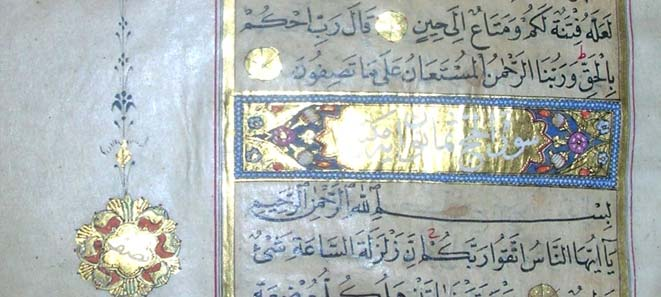 لَعَلَّهُ فِتْنَةٌ لَكُمْ وَمَتَاعٌ اِلٰى حِينٍ قَالَ رَبِّ احْكُمْ
بِالْحَقِّ وَرَبُّنَا الرَّحْمٰنُ الْمُسْتَعَانُ عَلٰى مَا تَصِفُونَ
سورة
بِسْمِ اللّٰهِ الرَّحْمٰنِ الرَّحِيمِ
يَآ اَيُّهَا النَّاسُ اتَّقُوا رَبَّكُمْ اِنَّ زَلْزَلَةَ السَّاعَةِ شَيْءٌ
نصف